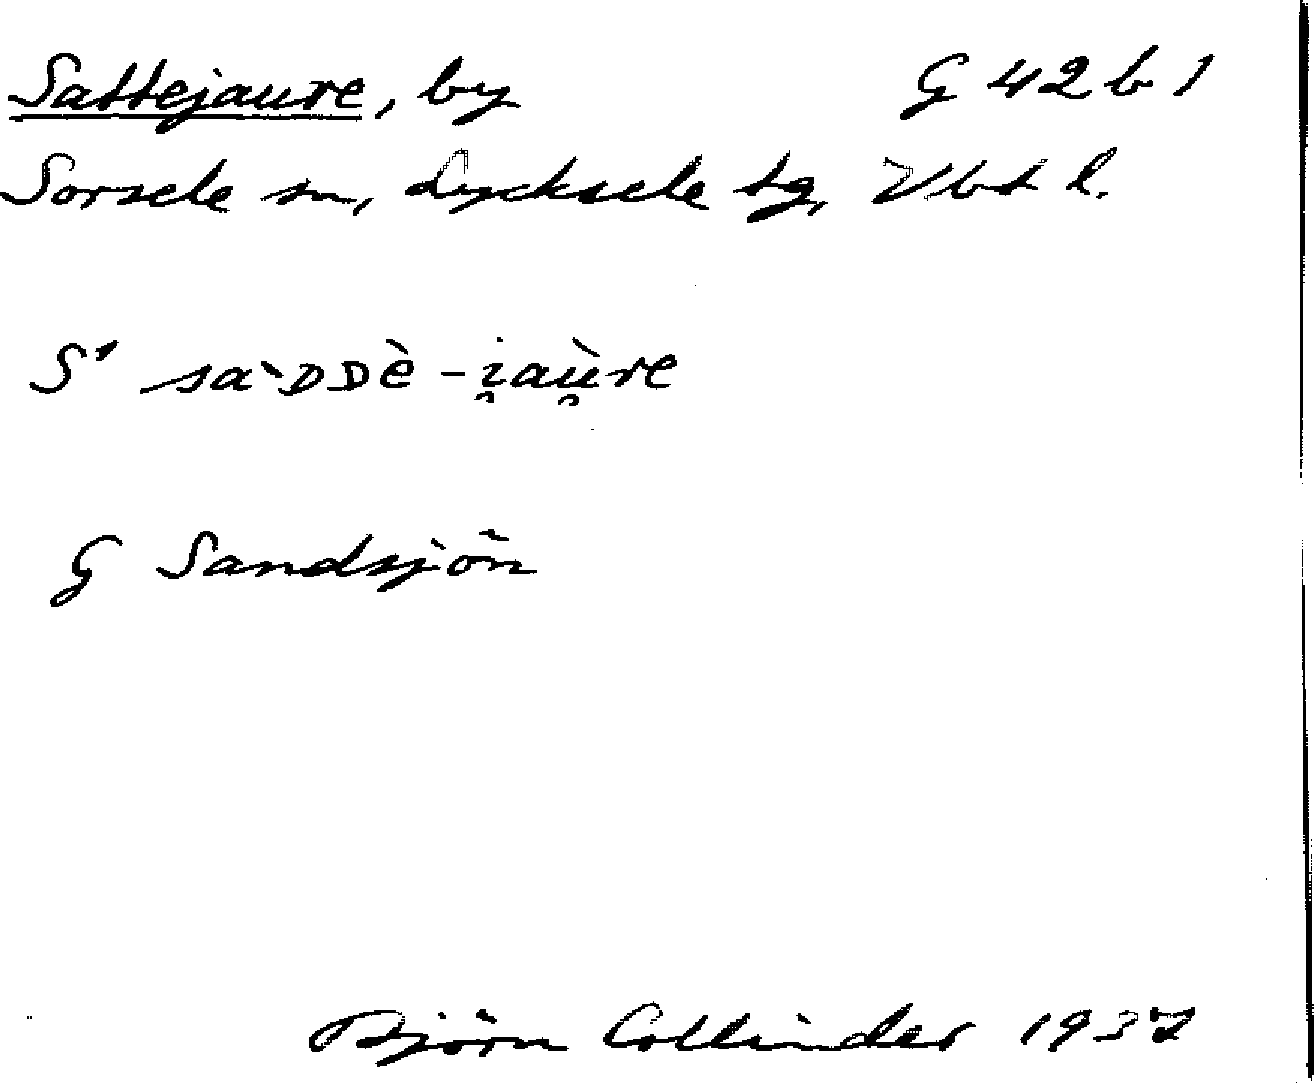 Sattejaure, by G 42 b 1
Sorsele sn, Lycksele tg, Vbt l.
S' sa`ᴅᴅè-i̯aù̯re
G Sandsjön
Björn Collinder 1937